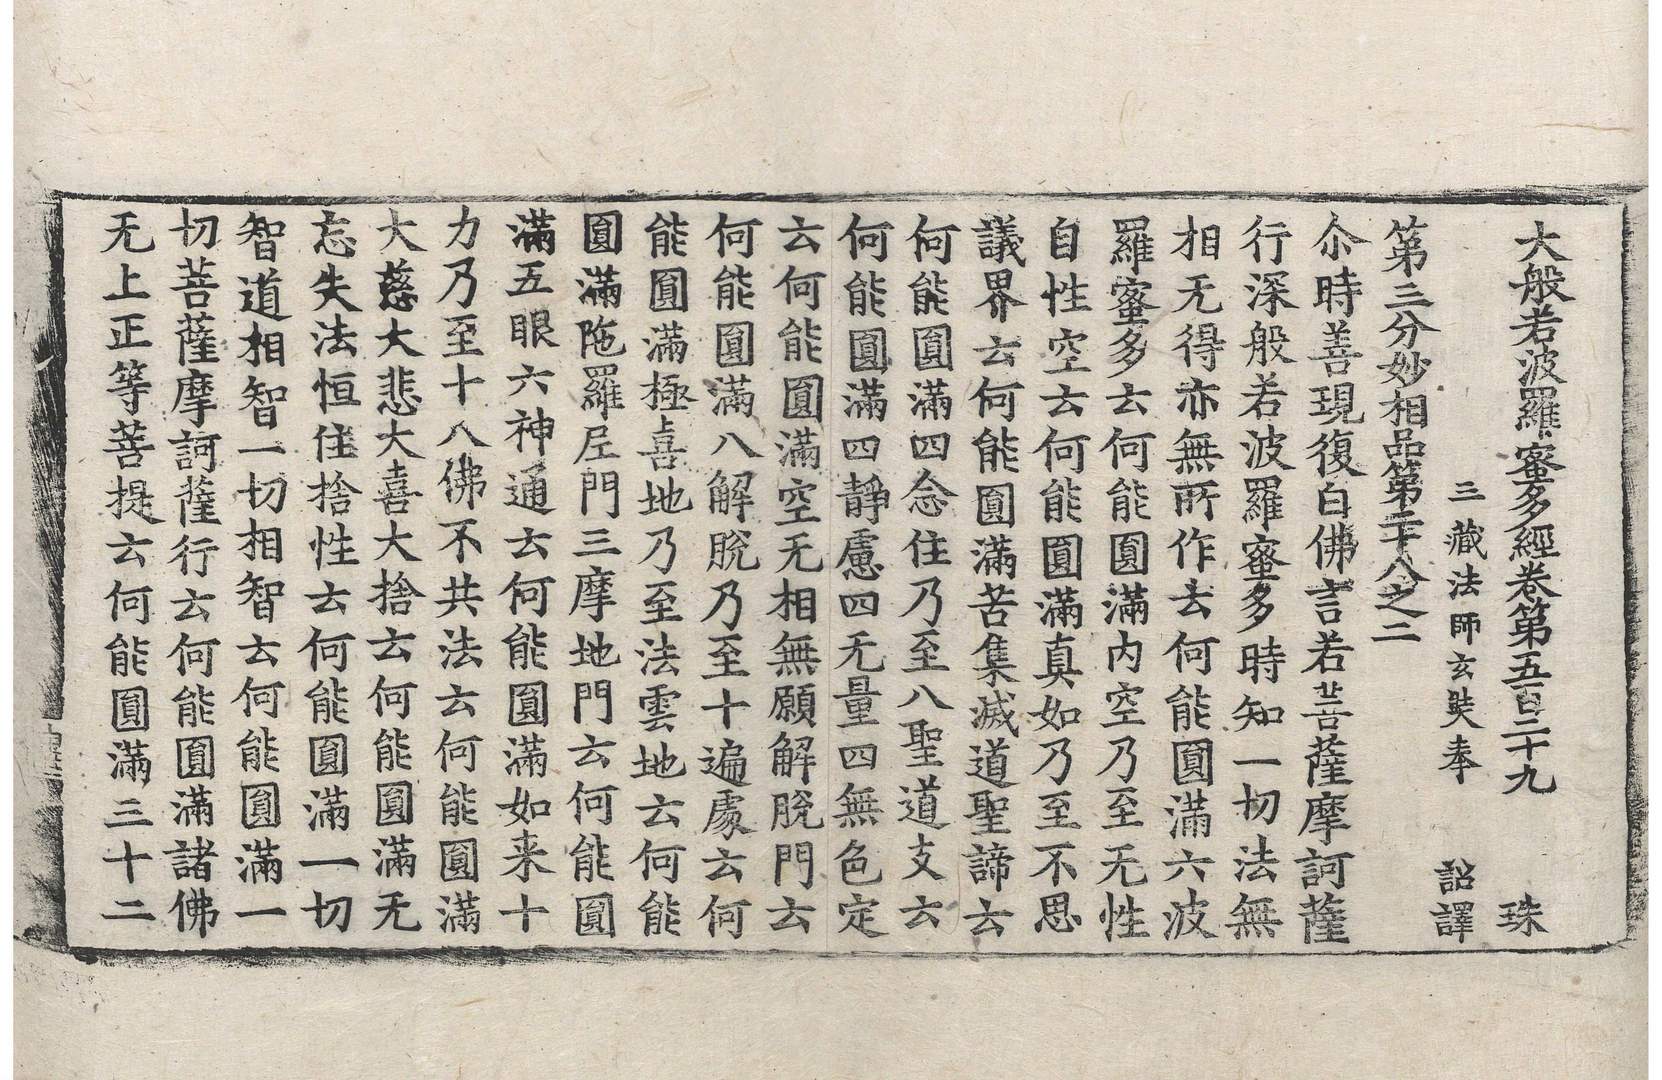 大般若波羅蜜多經卷第五百二十九 珠
三藏法師玄奘奉 詔譯
第三分妙相品第二十八之二
尒時善現復白佛言若菩薩摩訶薩
行深般若波羅蜜多時知一切法無
相无得亦無所作去何能圓滿六波
羅蜜多云何能圓滿內空乃至无性
自性空云何能圓滿真如乃至不思
議界云何能圓滿苦集滅道聖諦云
何能圓滿四念住乃至八聖道支云
何能圓滿四靜慮四无量四無色定
云何能圓滿空无相無願解脫門云
何能圓滿八解脫乃至十遍處云何
能圓滿極喜地乃至法雲地云何能
圓滿陁羅尼門三摩地門云何能圓
滿五眼六神通云何能圓滿如来十
力乃至十八佛不共法云何能圓滿
大慈大悲大喜大捨云何能圓滿无
忘失法恒住捨性云何能圓滿一切
智道相智一切相智云何能圓滿一
切菩薩摩訶薩行云何能圓滿諸佛
无上正等菩提云何能圓滿三十二